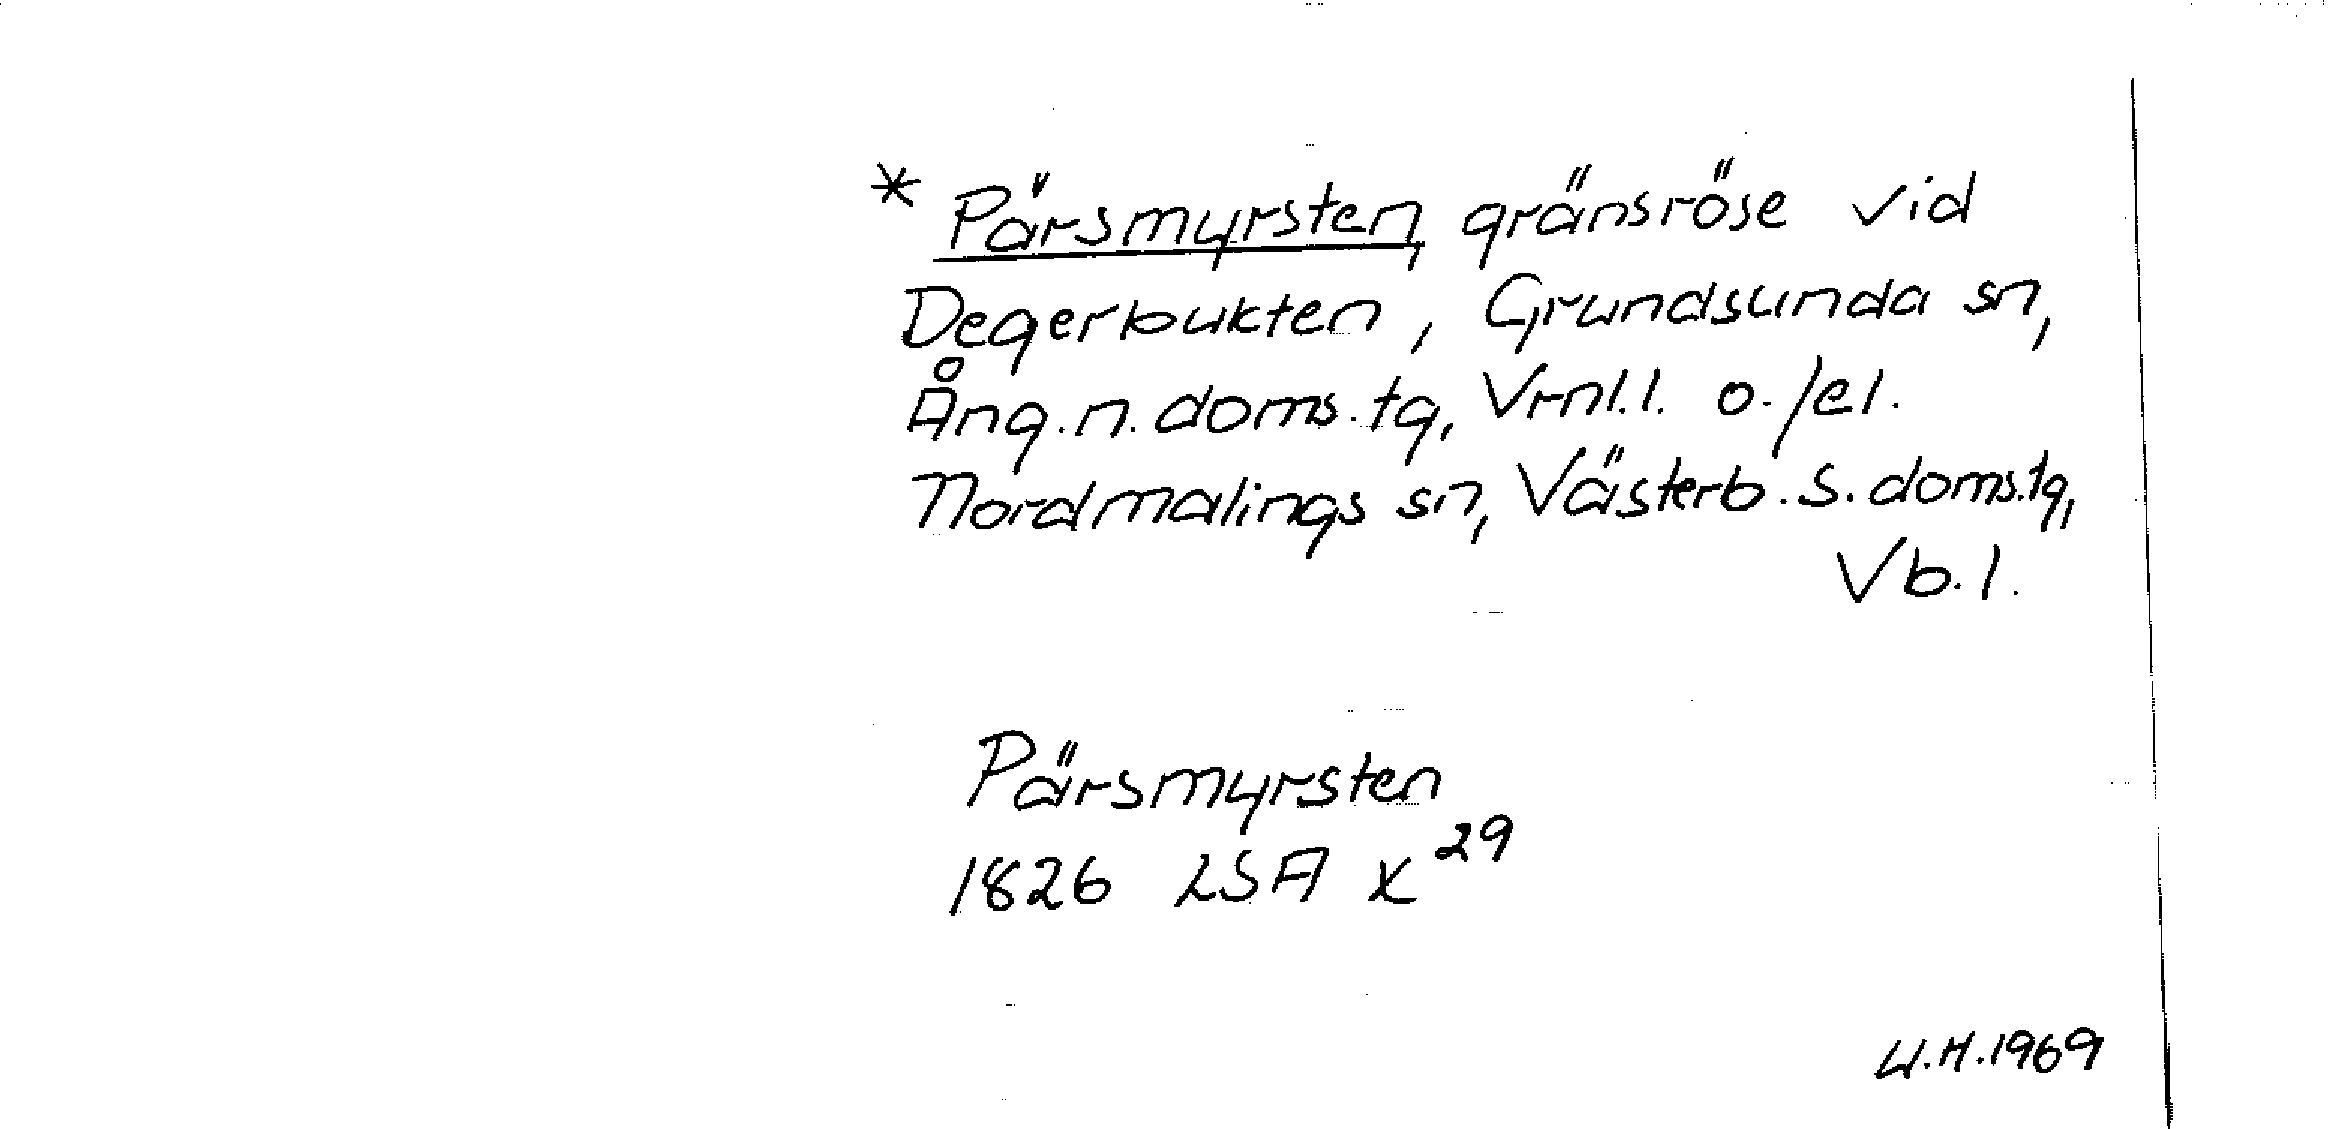 * Pärsmyrsten, gränsröse vid
Degerbukten, Grundsunda sn,
Ång.n.doms.tg, Vrnl.l. o./el.
Nordmalings sn, Västerb.s.doms.tg,
Vb.l.
Pärsmyrsten
1826 LSA X 29
U.H.1969